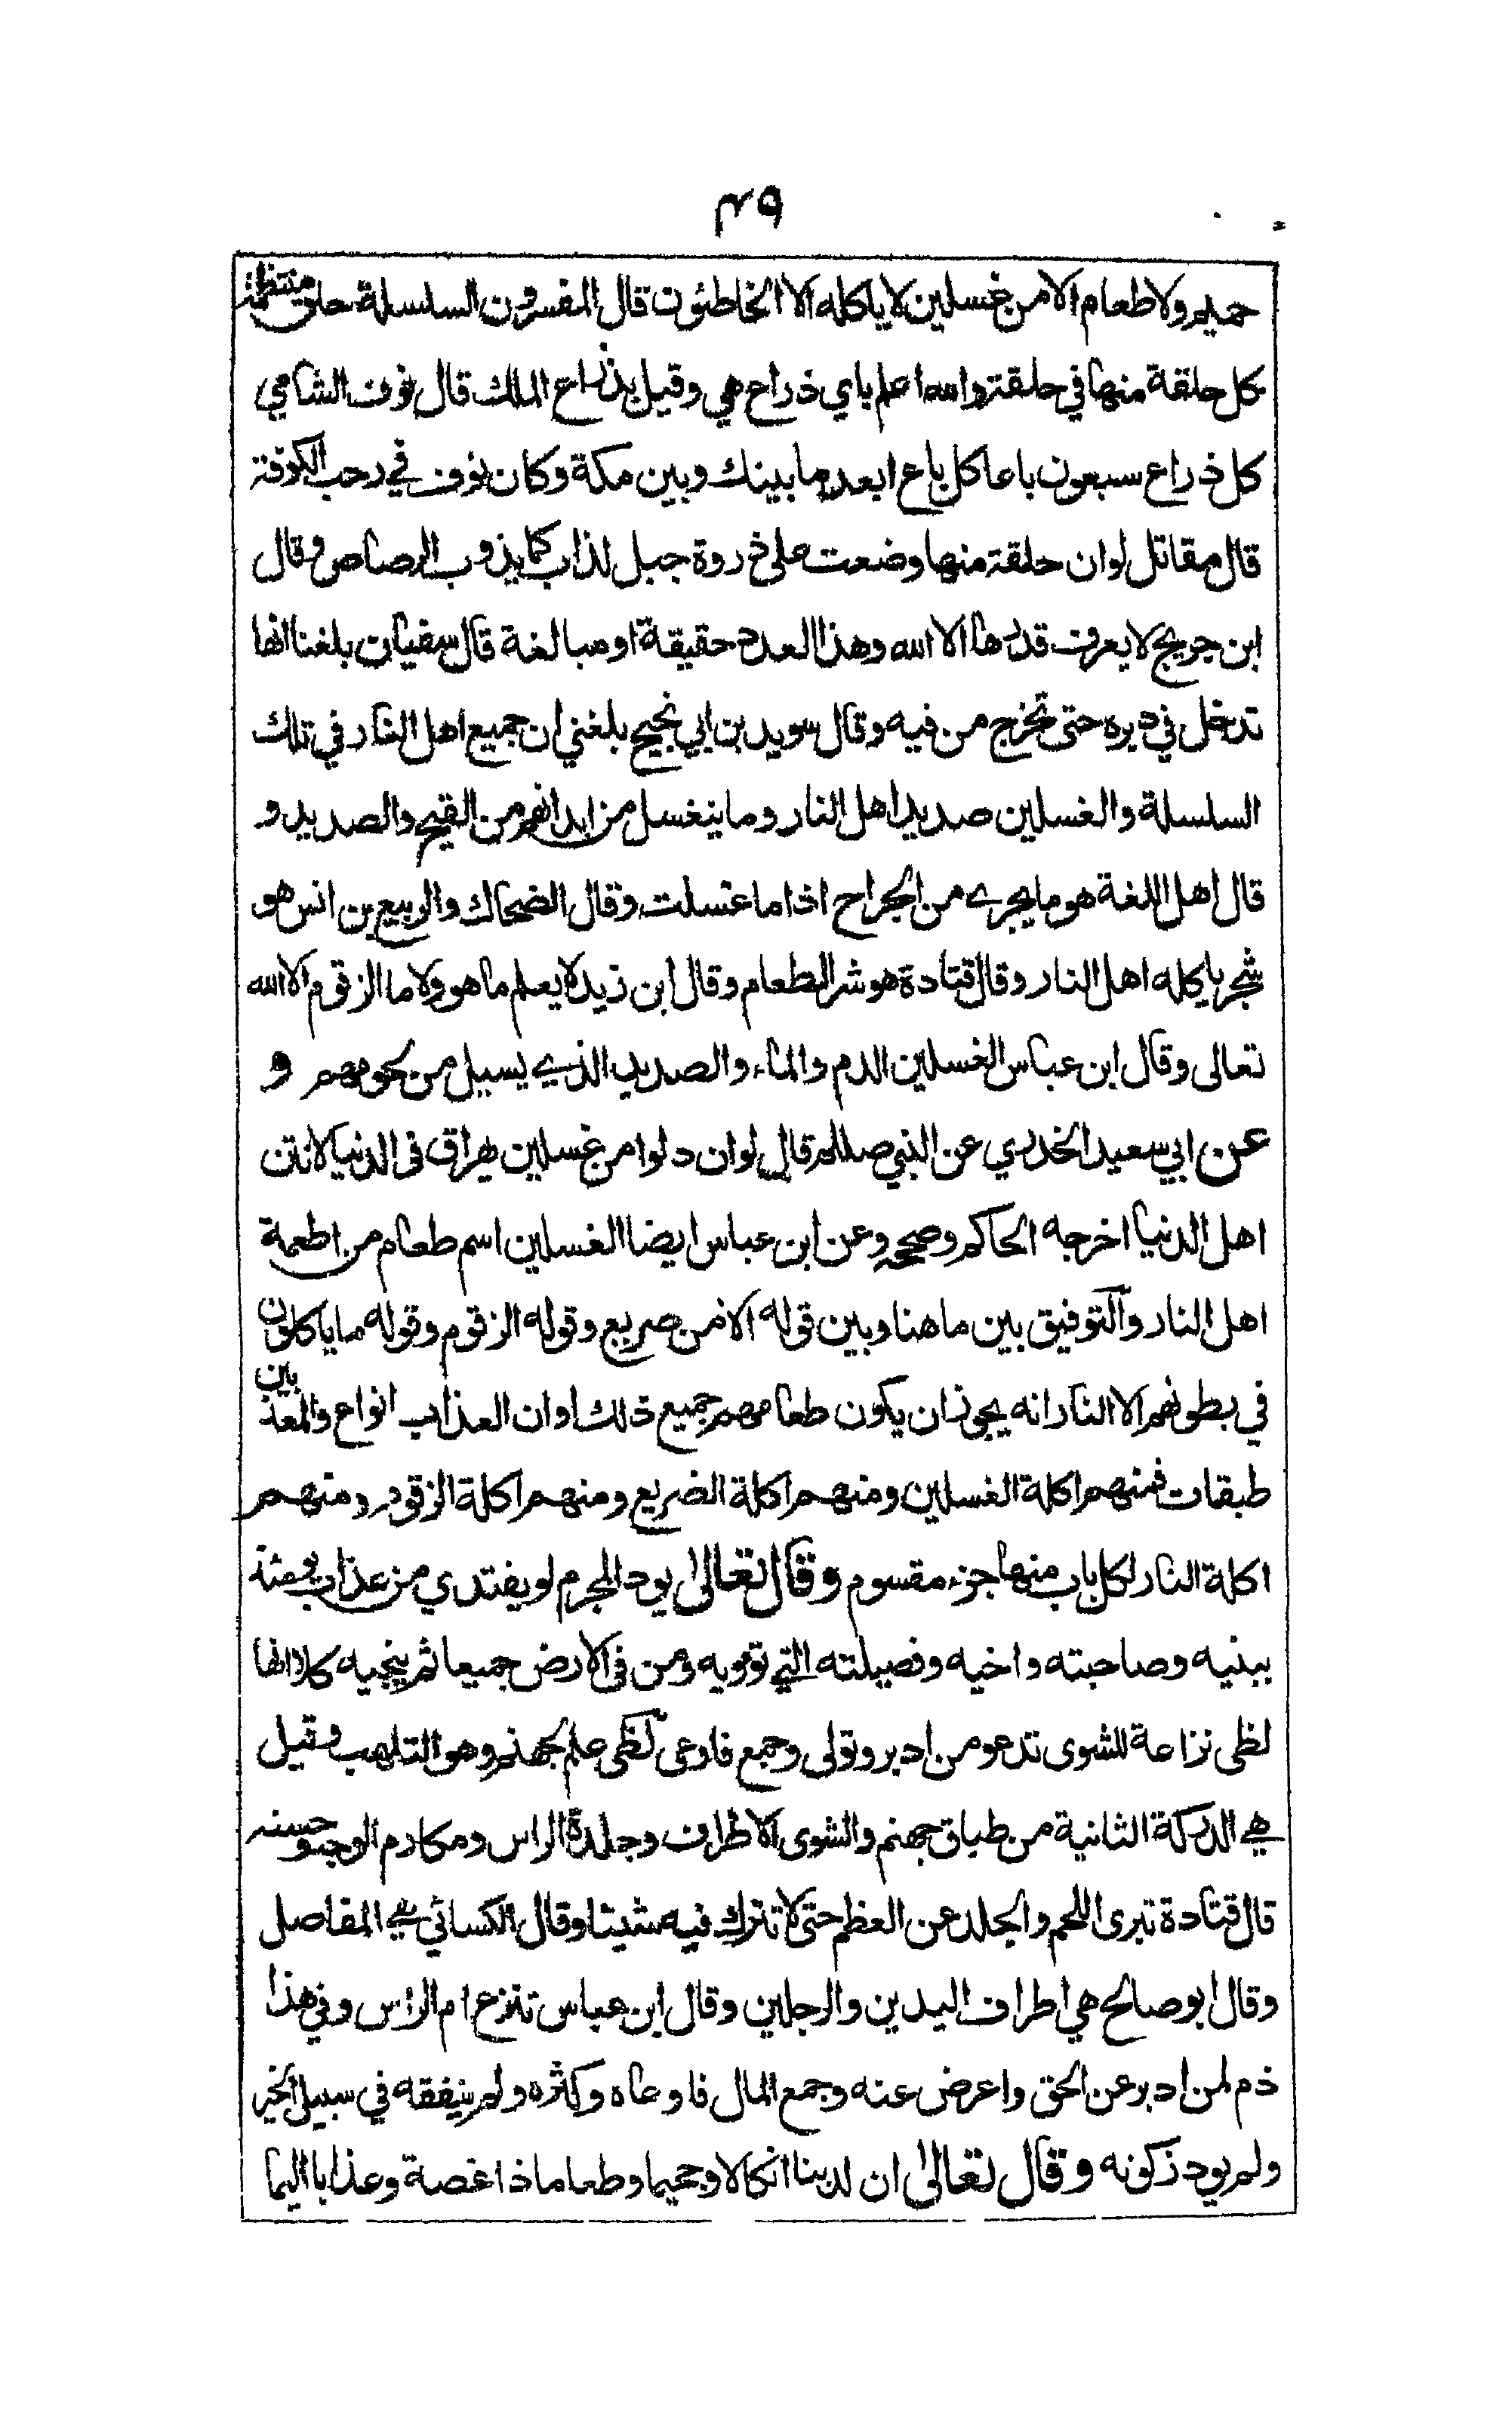 ٤٩
حميم ولا طعام الا من غسلين لا ياكله الا الخاطئون قال المفسرون السلسلة حلق منتظمة
كل حلقة منها في حلقة والله اعلم باي ذراع هي وقيل بذراع الملك قال نوف الشامي
كل ذراع سبعون باعا كل باع ابعد ما بينك وبين مكة وكان نوف في رحب الكوفة
قال مقاتل لو ان حلقة منها وضعت على ذروة جبل لذاب كما يذوب الرصاص وقال
ابن جريج لا يعرف قدرها الا الله وهذا العدد حقيقة او مبالغة قال سفيان بلغنا انها
تدخل في ديره حتى تخرج من فيه وقال سويد بن ابي نجيح بلغني ان جميع اهل النار في تلك
السلسلة والغسلين صديد اهل النار وما ينغسل من ابدانهم من القيح والصديد و
قال اهل اللغة هو ما يجرے من الجراح اذا ما غسلت وقال الضحاك والربيع بن انس هو
شجر ياكله اهل النار وقال قتادة هو شر الطعام وقال ابن زيد لا يعلم ما هو ولا ما الزقوم الا الله
تعالى وقال ابن عباس الغسلين الدم والماء والصديد الذي يسيل من لحومهم و
عن ابي سعيد الخدري عن النبي صللم قال لو ان دلوا من غسلين يهراق في الدنيا لانتن
اهل الدنيا اخرجه الحاكم وصححه وعن ابن عباس ايضا الغسلين اسم طعام من اطعمة
اهل النار والتوفيق بين ما هنا وبين قوله الا من ضريع وقوله الزقوم وقوله ما ياكلون
في بطونهم الا النار انه يجوز ان يكون طعامهم جميع ذلك او ان العذاب انواع والمعذبين
طبقات فمنهم اكلة الغسلين ومنهم اكلة الضريع ومنهم اكلة الزقوم ومنهم
اكلة النار لكل باب منها جزء مقسوم وقال تعالى يود المجرم لو يفتدي من عذاب يومئذ
ببنيه وصاحبته واخيه وفصيلته التي تؤويه ومن في الارض جميعا ثم ينجيه كلا انها
لظى نزاعة للشوى تدعو من ادبر وتولى وجمع فاوعى لظى علم لجهنم وهو التلهب وقيل
هي الدركة الثانية من طباق جهنم والشوى الاطراف وجلدة الراس ومكارم الوجه وحسنه
قال قتادة تبرى اللحم والجلد عن العظم حتى لا تترك فيه شيئا وقال الكسائي هي المفاصل
وقال ابو صالح هي اطراف اليدين والرجلين وقال ابن عباس تنزع ام الراس وفي هذا
ذم لمن ادبر عن الحق واعرض عنه وجمع المال فاوعاه وكنزه ولم ينفقه في سبيل الخير
ولم يود زكوته وقال تعالى ان لدينا انكالا وجحيما وطعاما ذا غصة وعذابا اليما